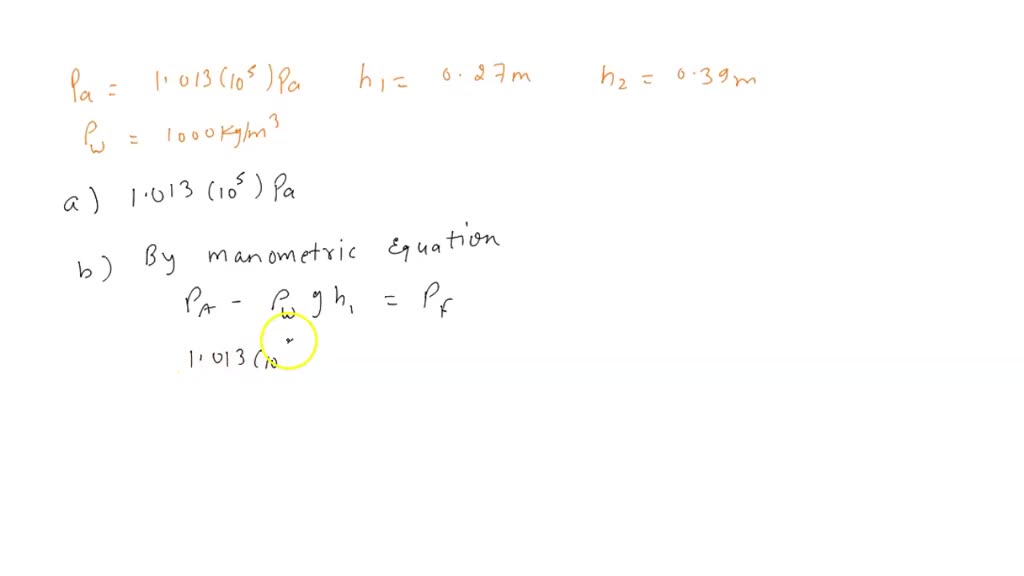 Pa = 1.013(10⁵)Pa h₁ = 0.27m h₂ = 0.39m
ρw = 1000Kg/m³
a) 1.013(10⁵)Pa
b) By manometric Equation
PA - ρw g h₁ = Pf
1.013(10